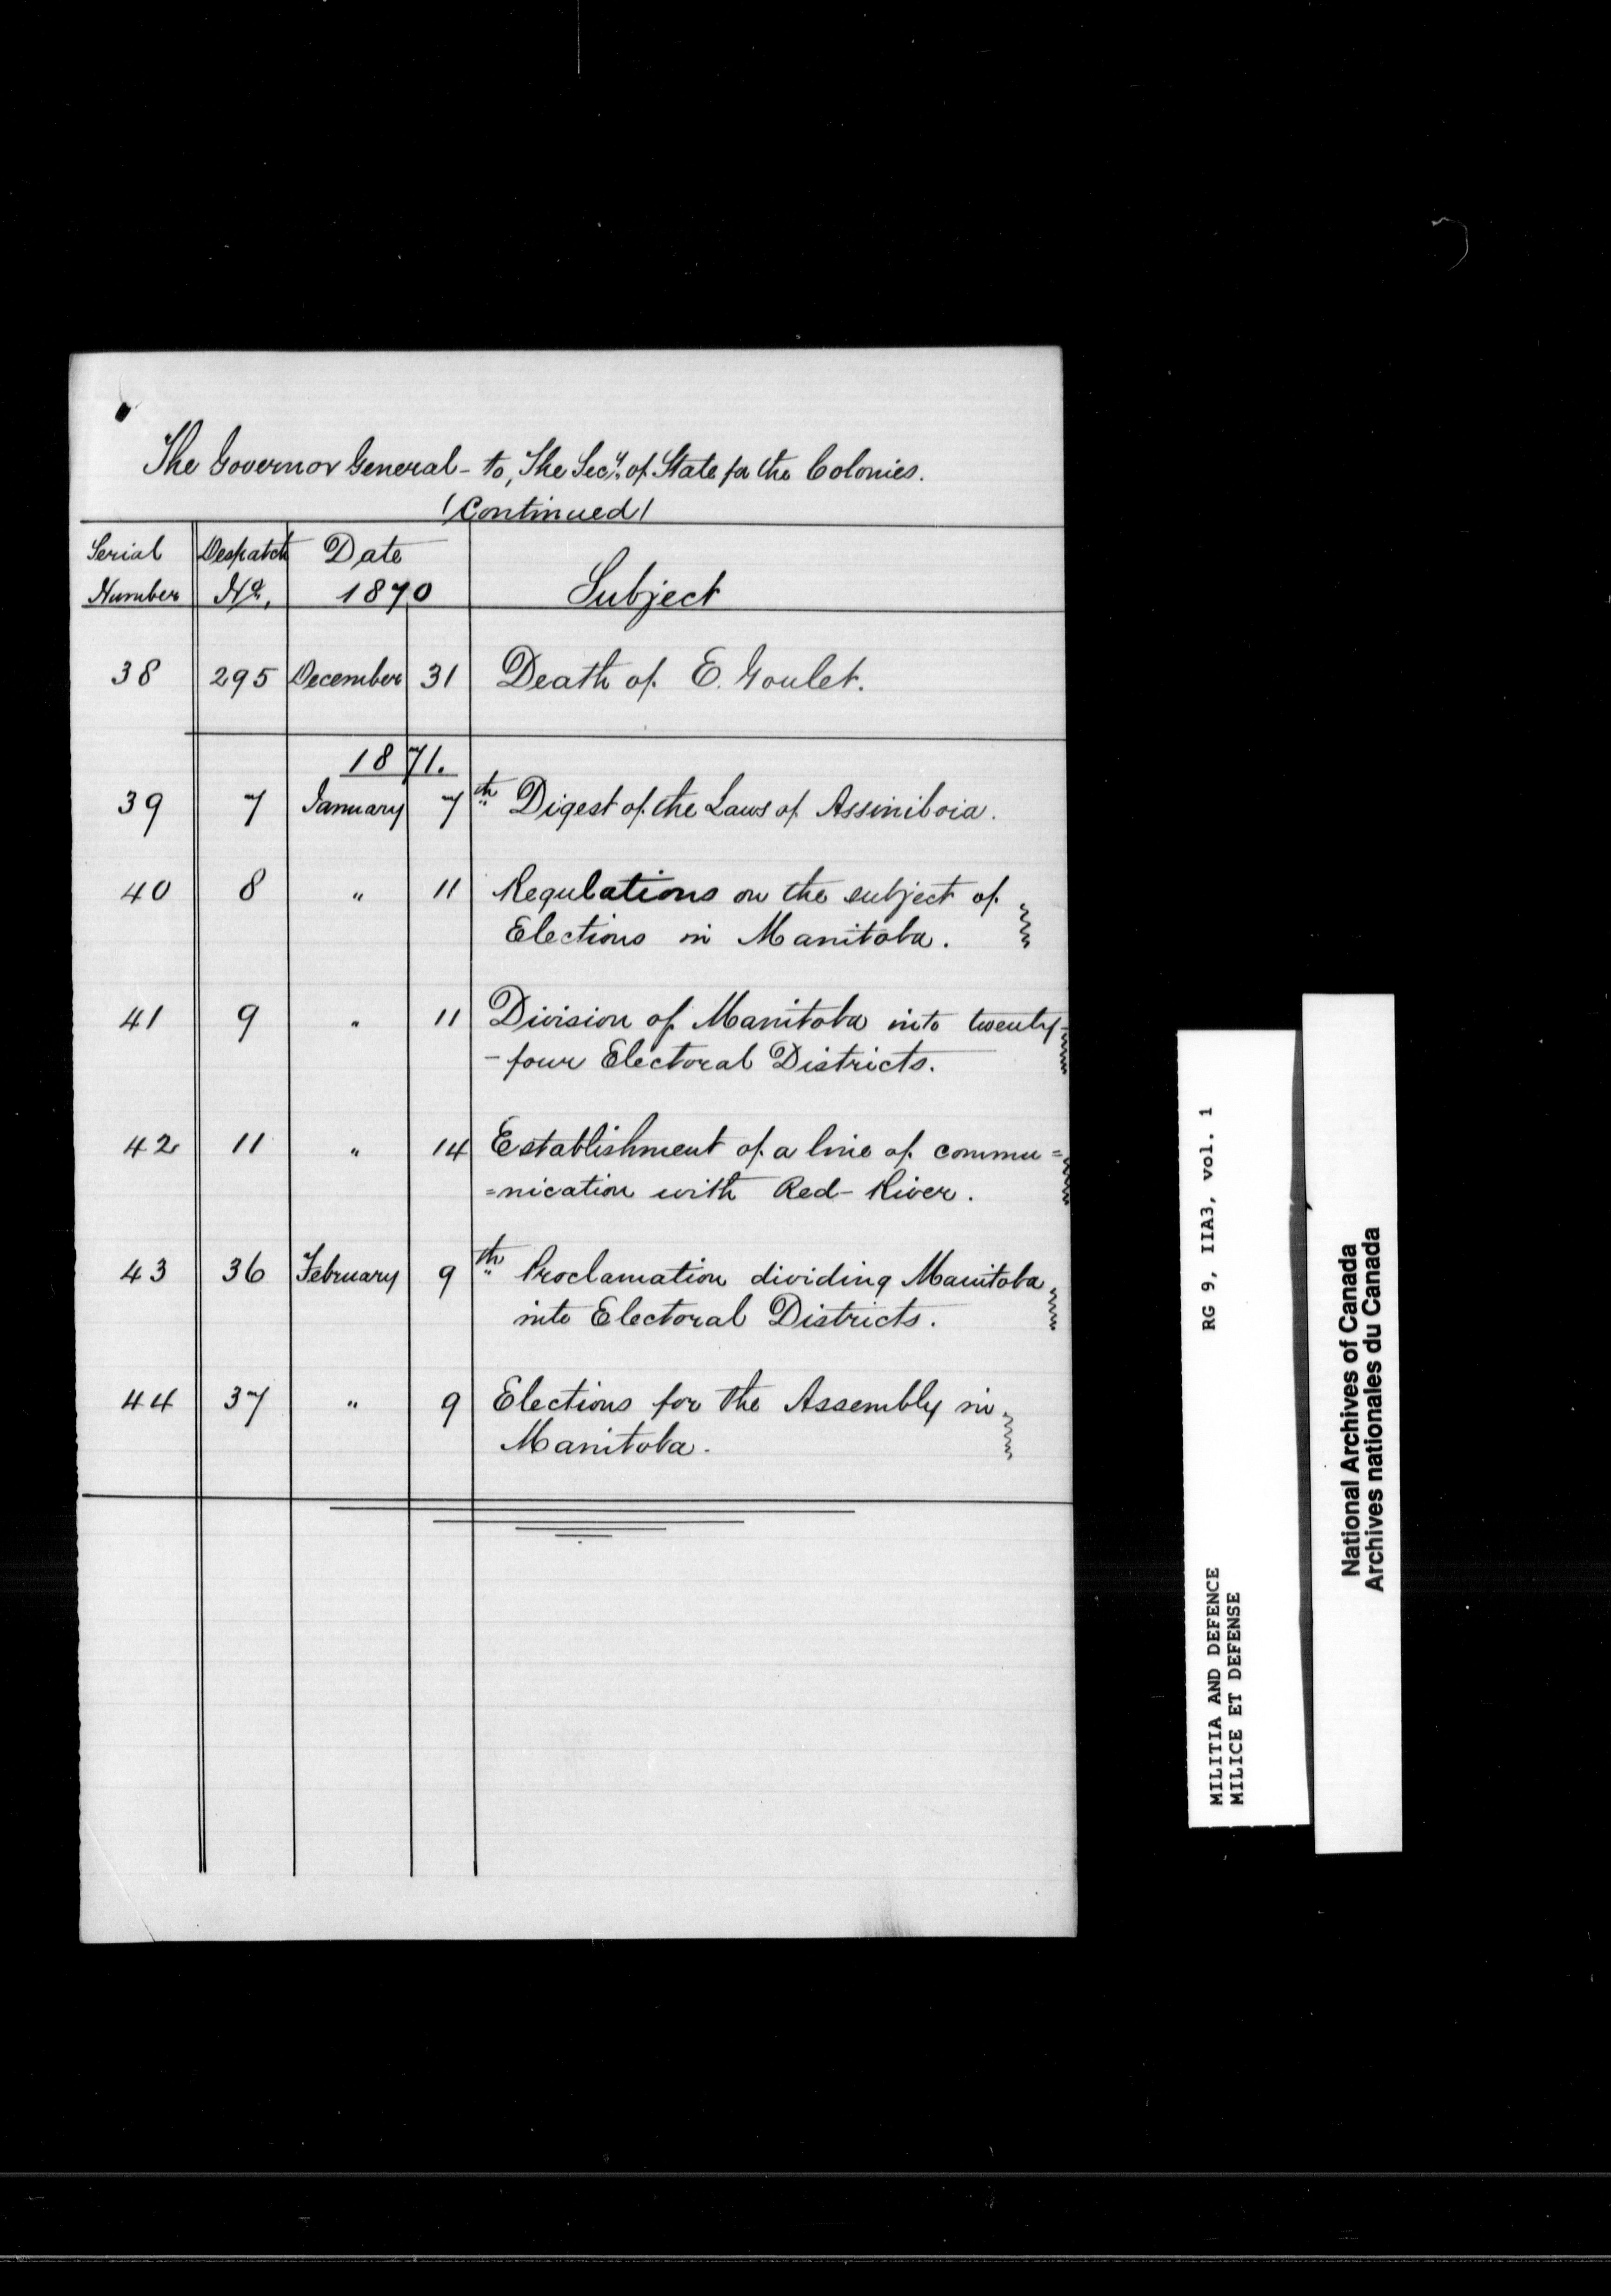 The Governor General - to, The Secy. of State for the Colonies.
(Continued)
Serial Despatch Date
Number No. 1870 Subject
38 295 December 31 Death of E. Goulet.
1871.
39 7 January 7th Digest of the Laws of Assiniboia.
40 8 " 11 Regulations on the subject of
Elections in Manitoba.
41 9 " 11 Division of Manitoba into twenty-
- four Electoral Districts.
42 11 " 14 Establishment of a line of commu=
=nication with Red-River.
43 36 February 9th Proclamation dividing Manitoba
into Electoral Districts.
44 37 " 9 Elections for the Assembly in
Manitoba.
MILITIA AND DEFENCE RG 9, IIA3, vol. 1
MILICE ET DEFENSE
National Archives of Canada
Archives nationales du Canada